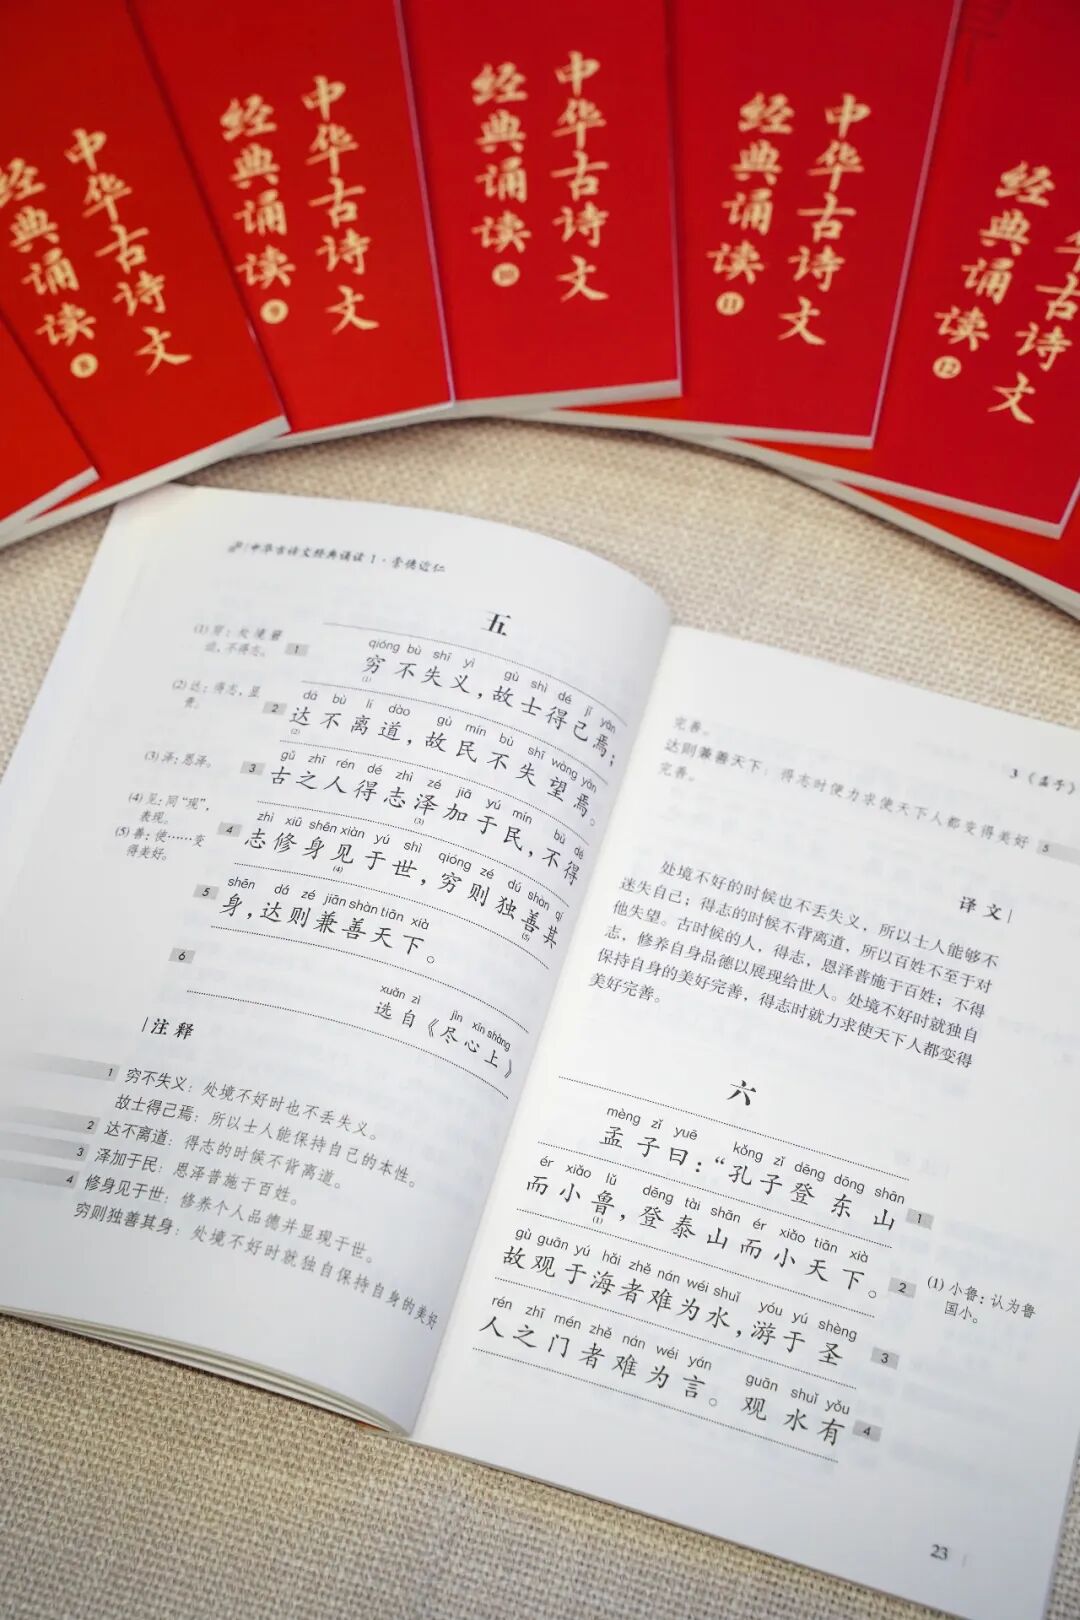 中华古诗文
经典诵读
8
中华古诗文
经典诵读
9
中华古诗文
经典诵读
10
中华古诗文
经典诵读
11
中华古诗文
经典诵读
12
中华古诗文经典诵读1·崇德近仁
五
qióng bù shī yì gù shì dé jǐ yān
穷不失义，故士得己焉；
dá bù lí dào gù mín bù shī wàng yān
达不离道，故民不失望焉。
gǔ zhī rén dé zhì zé jiā yú mín bù dé
古之人得志泽加于民，不得
zhì xiū shēn xiàn yú shì qióng zé dú shàn qí
志修身见于世，穷则独善其
shēn dá zé jiān shàn tiān xià
身，达则兼善天下。
xuǎn zì jìn xīn shàng
选自《尽心上》
1
2
3
4
5
6
(1)穷：处境窘
迫，不得志。
(2)达：得志，显
贵。
(3)泽：恩泽。
(4)见：同“现”，
表现。
(5)善：使……变
得美好。
注释
1 穷不失义：处境不好时也不丢失义。
故士得己焉：所以士人能保持自己的本性。
2 达不离道：得志的时候不背离道。
3 泽加于民：恩泽普施于百姓。
4 修身见于世：修养个人品德并显现于世。
穷则独善其身：处境不好时就独自保持自身的美好
完善。
达则兼善天下：得志时便力求使天下人都变得美好
完善。
3《孟子》
5
译文
处境不好的时候也不丢失义，所以士人能够不
迷失自己；得志的时候不背离道，所以百姓不至于对
他失望。古时候的人，得志，恩泽普施于百姓；不得
志，修养自身品德以展现给世人。处境不好时就独自
保持自身的美好完善，得志时就力求使天下人都变得
美好完善。
六
mèng zǐ yuē kǒng zǐ dēng dōng shān
孟子曰：“孔子登东山
ér xiǎo lǔ dēng tài shān ér xiǎo tiān xià
而小鲁，登泰山而小天下。
gù guān yú hǎi zhě nán wéi shuǐ yóu yú shèng
故观于海者难为水，游于圣
rén zhī mén zhě nán wéi yán guān shuǐ yǒu
人之门者难为言。观水有
1
2
3
4
(1)小鲁：认为鲁
国小。
23